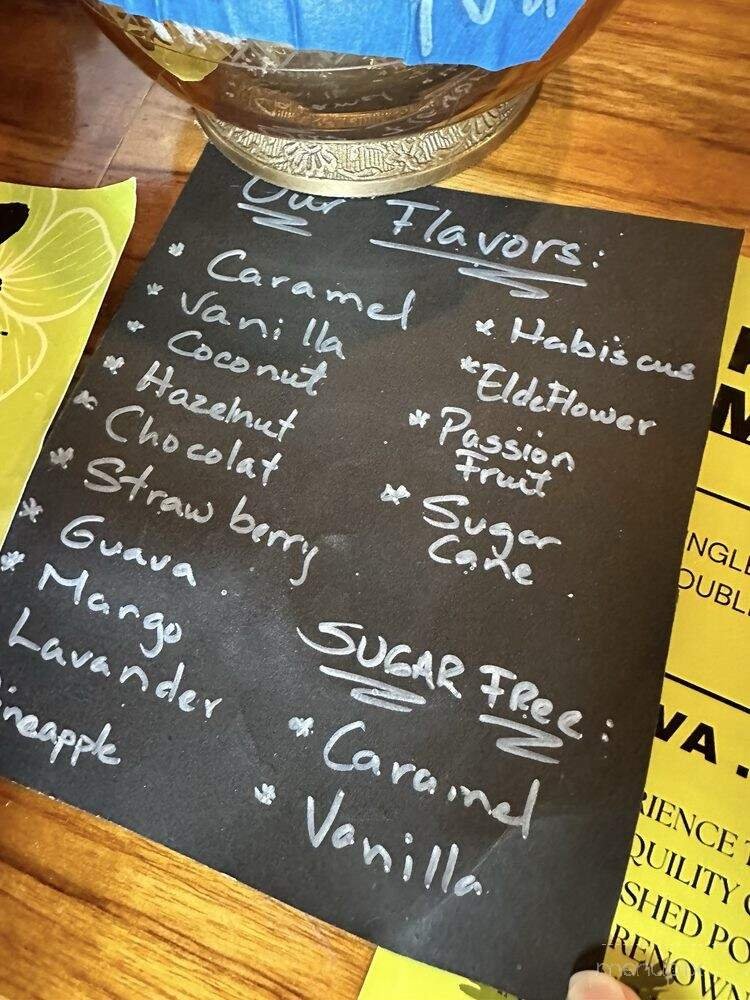 Our Flavors:
* Caramel
* Vanilla
* Coconut
* Hazelnut
* Chocolat
* Strawberry
* Guava
* Mango
Lavander
ineapple
* Habiscus
* EldeFlower
* Passion
Fruit
* Sugar
Cane
SUGAR FREE:
* Caramel
* Vanilla
NGLE
OUBL
VA .
RIENCE
QUILITY
SHED PO
RENOWN